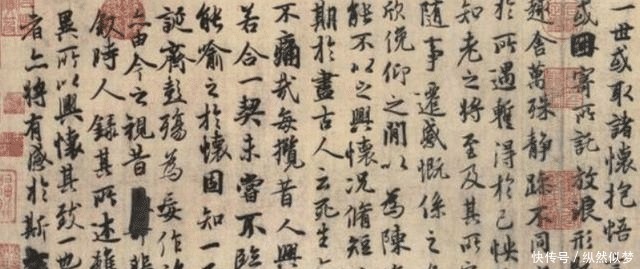 一世或取諸懷抱悟
或因寄所託放浪形
趣舍萬殊靜躁不同
於所遇暫得於己怏
知老之將至及其所
隨事遷感慨係之
欣俛仰之閒以為陳
能不以之興懷況脩短
期於盡古人云死生
不痛哉每攬昔人興
若合一契未嘗不臨
能喻之於懷固知一
誕齊彭殤為妄作
亦由今之視昔
敘時人錄其所述雖
異所以興懷其致一也
者亦將有感於斯
快传号 / 纵然似梦